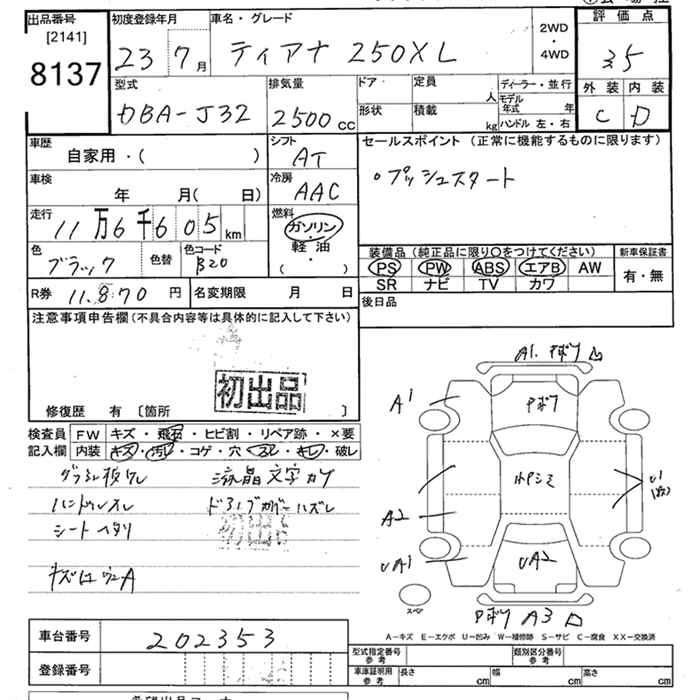 出品番号 初度登録年月 車名・グレード 2WD・4WD 評価点
[2141]
8137 23 7月 ティアナ 250XL 3.5
型式 排気量 ドア 定員 人 ディーラー・並行 外装 内装
DBA-J32 2500cc 形状 積載 kg モデル年式 年 C D
ハンドル 左・右
車歴 シフト セールスポイント (正常に機能するものに限ります)
自家用・( ) AT
車検 冷房 ○プッシュスタート
年 月(日) AAC
走行 燃料
11万6千605km ガソリン・
色 色替 色コード 軽油・ 装備品 (純正品に限り○をつけてください) 新車保証書
ブラック B20 ( ) PS PW ABS エアB AW 有・無
R券 11,870円 名変期限 月 日 SR ナビ TV カワ
注意事項申告欄 (不具合内容等は具体的に記入して下さい) 後日品
初出品
修復歴 有 [箇所 ]
検査員 FW キズ・飛石・ヒビ割・リペア跡・×要
記入欄 内装 キズ・汚レ・コゲ・穴・スレ・キレ・破レ
液晶文字カケ
ハンドルスレ
シートヘタリ
初出品
A1
A1
A2
UA1
UA2
U1
スペア
A3
A-キズ E-エクボ U-凹み W-補修跡 S-サビ C-腐食 XX-交換済
車台番号 202353
登録番号
型式指定番号 参考 類別区分番号 参考
車庫証明用 参考 長さ cm 幅 cm 高さ cm